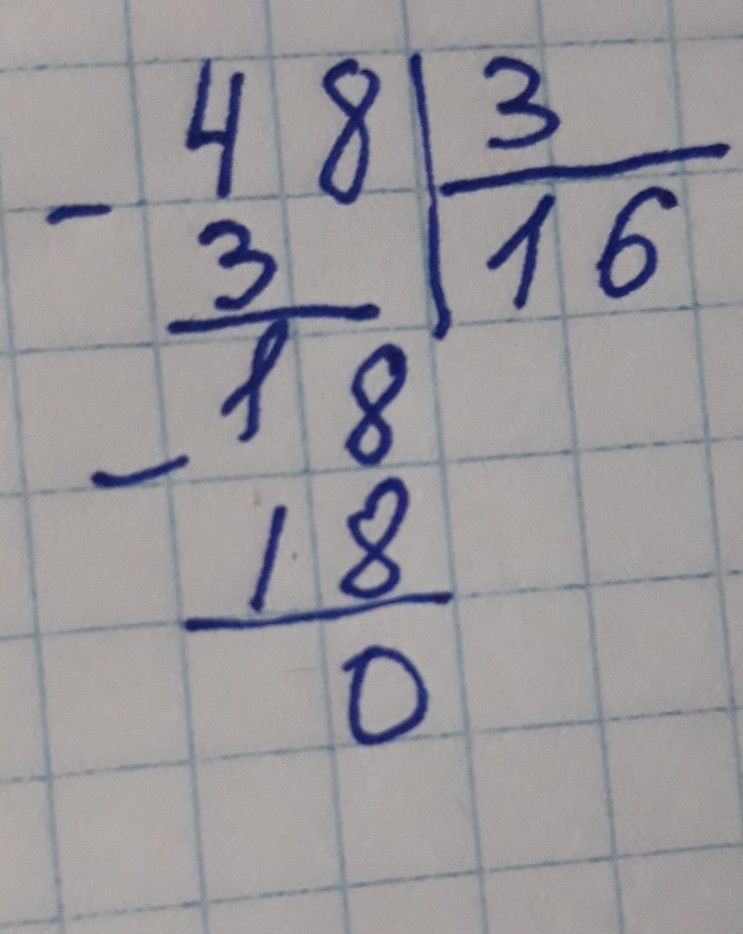 48 | 3
- 3 | 16
18
- 18
0